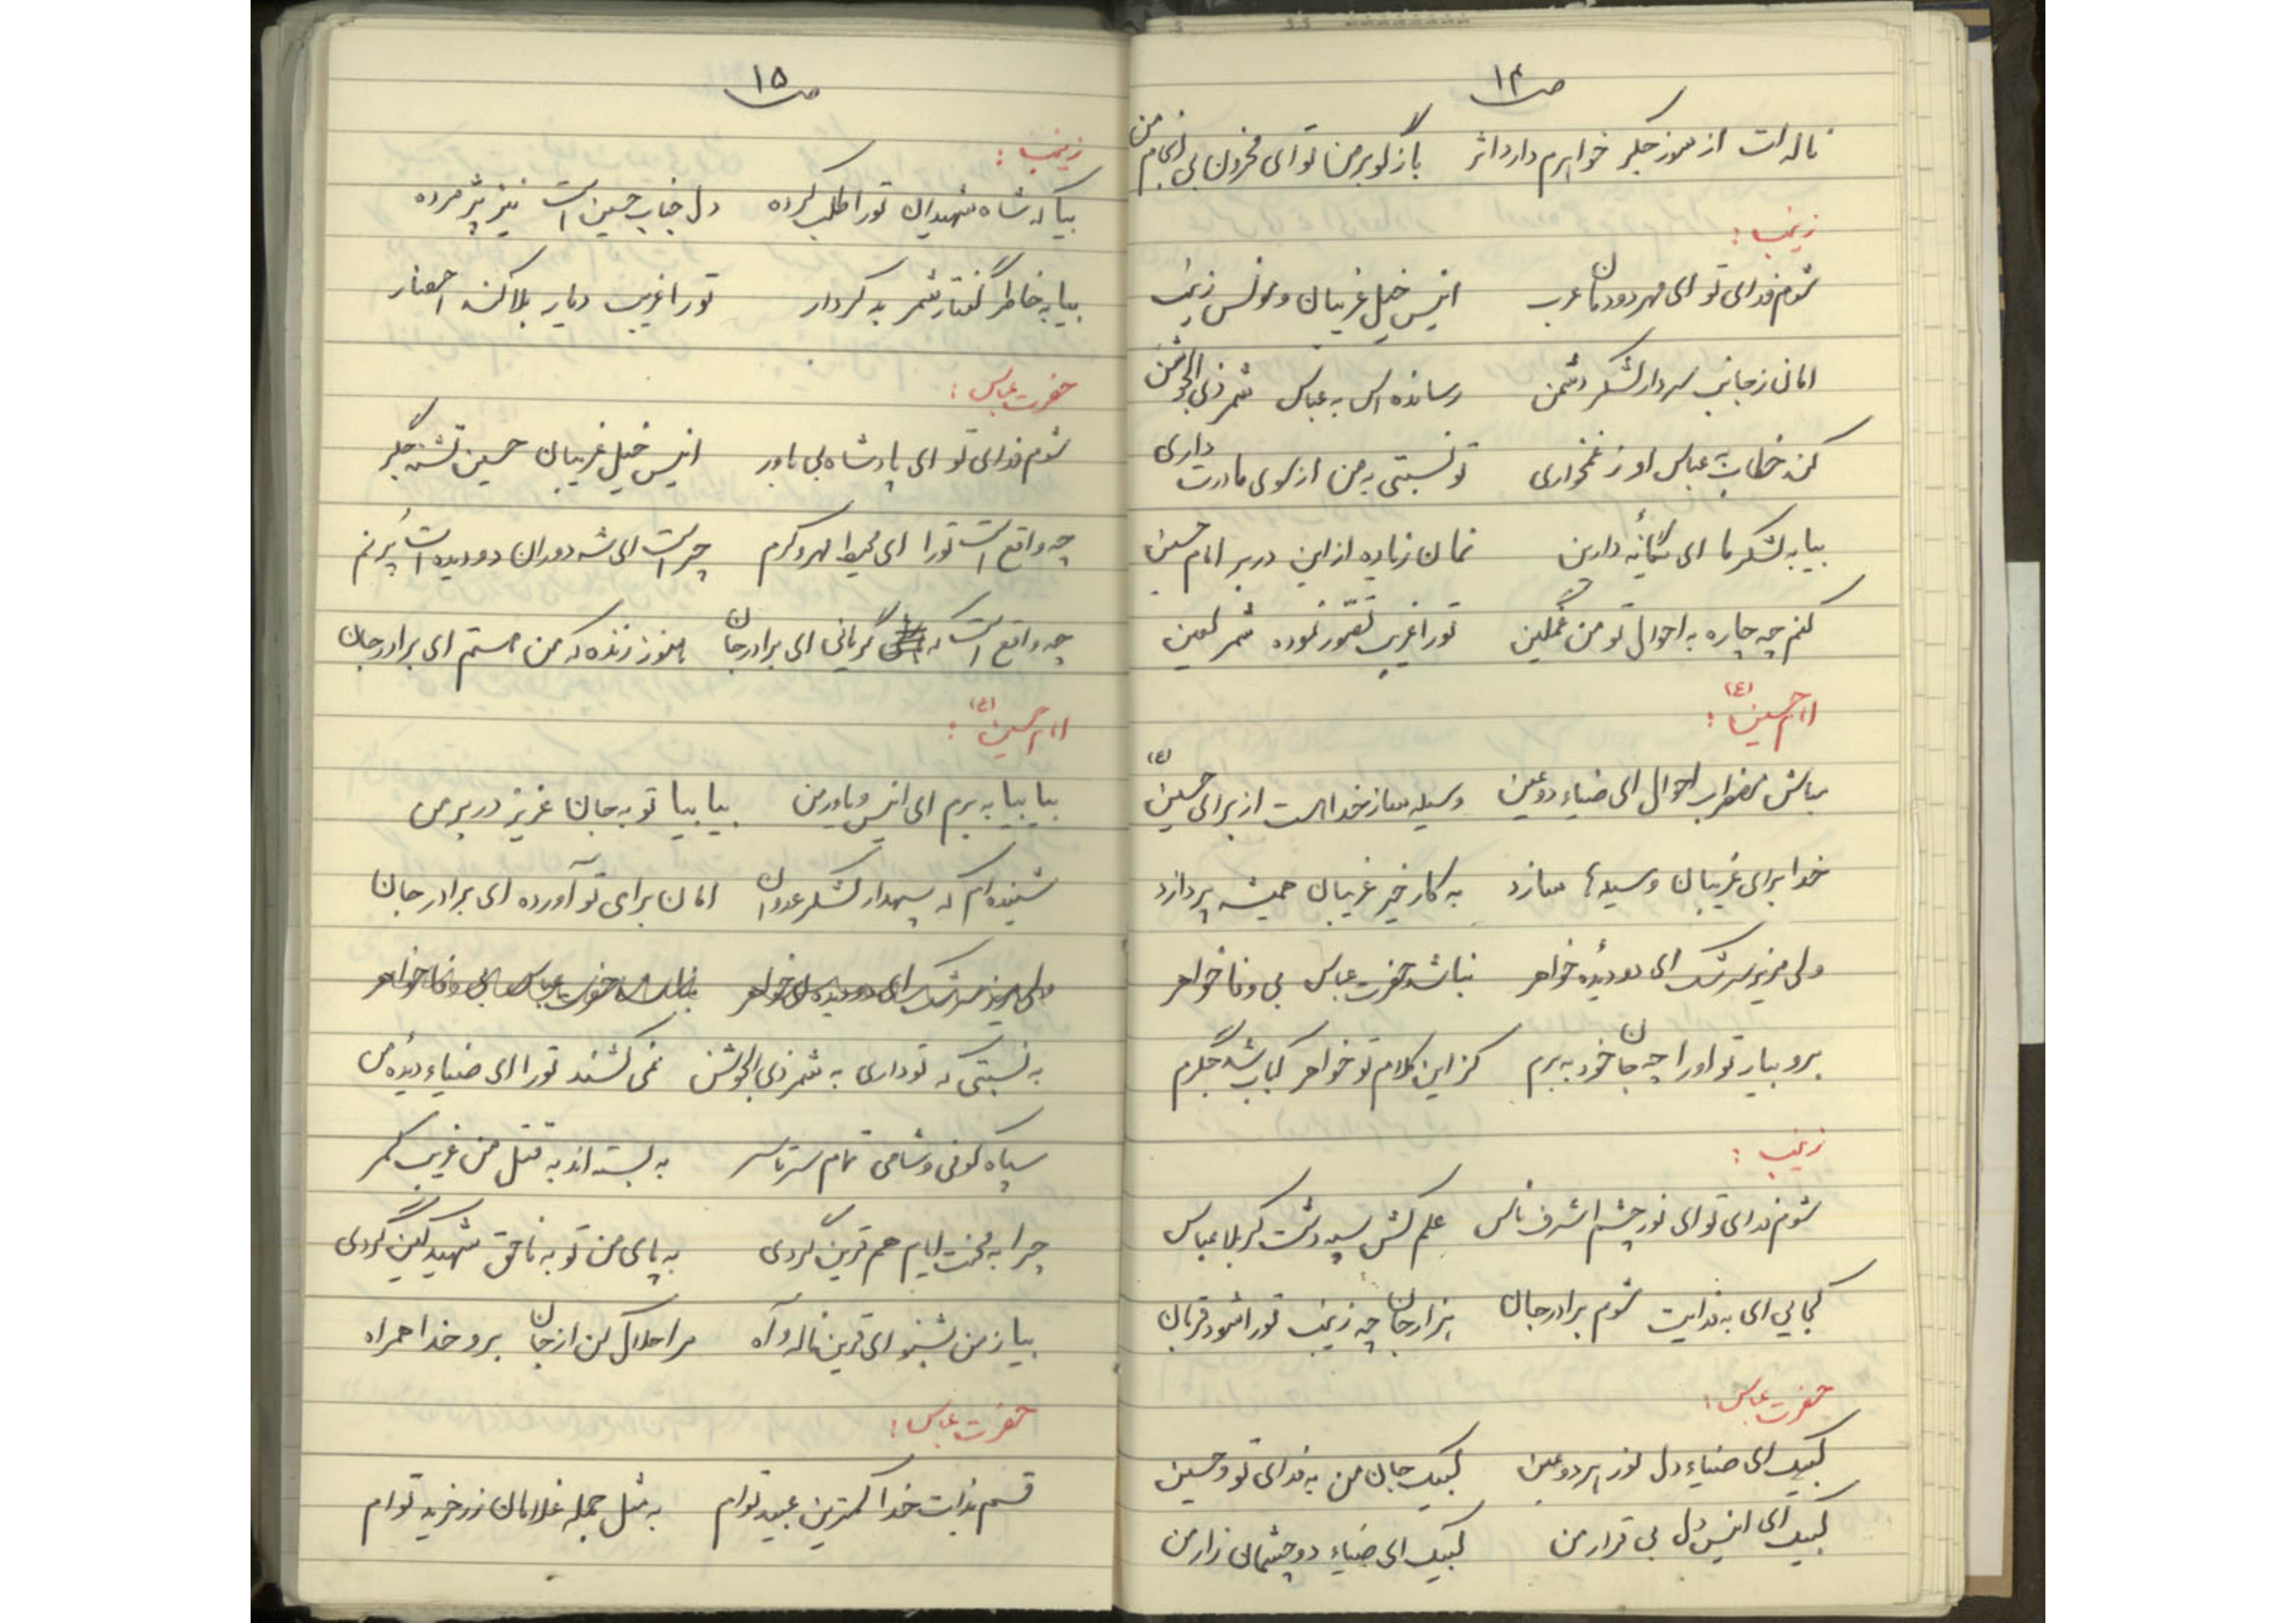 ص ۱۴
ناله ات از سوز جگر خواهرم دارد اثر    باز گو بر من تو ای محزون بی انجام من
زینب :
شوم فدای تو ای مهر دودمان عرب    انیس خیل غریبان و مونس زینب
امان ز جانب سردار لشکر دشمن    رسانده اس به عباس شمر ذی الجوشن
کند خطاب به عباس او ز غمخواری    تو نسبتی به من از سوی مادرت داری
بیا به لشکر ما ای یگانهٔ دارین    نمان زیاده از این در بر امام حسین
کنم چه چاره به احوال تو من غمگین    تو را غریب تصور نموده شمر لعین
امام حسین (ع) :
مباش مضطرب احوال ای ضیاء دو عین    وسیله ساز خدا هست از برای حسین (ع)
خدا برای غریبان وسیله ها سازد    به کار خیر غریبان همیشه پردازد
ولی مریز سرشک ای دو دیدهٔ خواهر    نباشد حضرت عباس بی وفا خواهر
برو بیار تو او را چه جان خود به برم    کز این کلام تو خواهر کباب شد جگرم
زینب :
شوم فدای تو ای نور چشم اشرف ناس    علم کش سپه دشت کربلا عباس
کجایی ای به فدایت شوم برادر جان    هزار جان چه زینب تو را شود قربان
حضرت عباس :
لبیک ای ضیاء دل نور هر دو عین    لبیک جان من به فدای تو و حسین
لبیک ای انیس دل بی قرار من    لبیک ای ضیاء دو چشمان زار من
ص ۱۵
زینب :
بیا که شاه شهیدان تو را طلب کرده    دل جناب حسین است نیز پژمرده
بیا به خاطر گفتار شمر بد کردار    تو را غریب دیار بلا کند احضار
حضرت عباس :
شوم فدای تو ای پادشاه بی یاور    انیس خیل غریبان حسین تشنه جگر
چه واقع است تو را ای محیط مهر و کرم    چراست ای شه دوران دو دیده است پُرنم
چه واقع است که گریانی ای برادر جان    هنوز زنده که من هستم ای برادر جان
امام حسین (ع) :
بیا بیا به برم ای انیس و یاور من    بیا بیا تو به جان عزیز در بر من
شنیده ام که سپهدار لشکر عدوان    امان برای تو آورده ای برادر جان
ولی مریز سرشک ای دو دیده خواهر    نباشد حضرت عباس بی وفا خواهر
به نسبتی که تو داری به شمر ذی الجوشن    نمی کشند تو را ای ضیاء دیدهٔ من
سپاه کوفی و شامی تمام سر تا سر    به بسته اند به قتل من غریب کمر
چرا به محنت ایام هم قرین گردی    به پای من تو به ناحق شهید کین گردی
بیا ز من بشنو ای قرین ناله و آه    مرا حلال کن از جان برو خدا همراه
حضرت عباس :
قسم بذات خدا کمترین عبید توام    به مثل جمله غلامان زر خرید توام